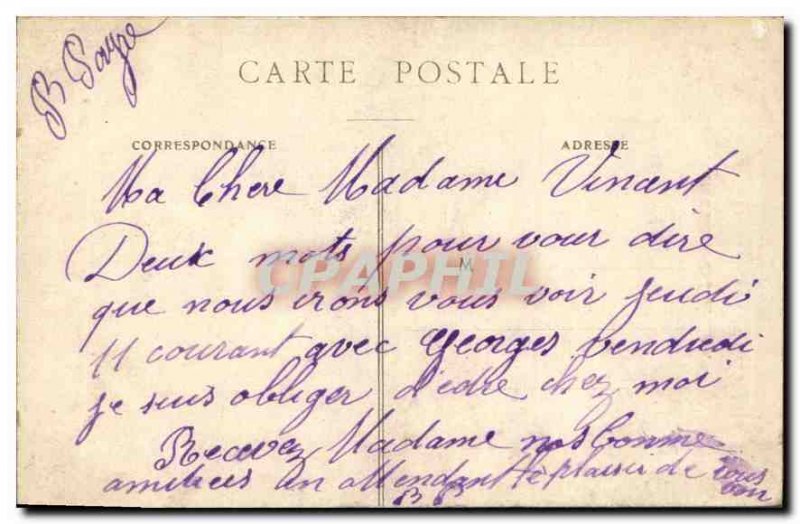 CARTE POSTALE
CORRESPONDANCE ADRESSE
Ma Chere Madame Vincent
Deux mots pour vour dire
M
CPAPHIL
que nous irons vous voir jeudi
11 courant avec Georges vendredi
je suis obliger d'edre chez moi
Recevez Madame nos bonne
amitiees en attendant le plaisir de vous
voir